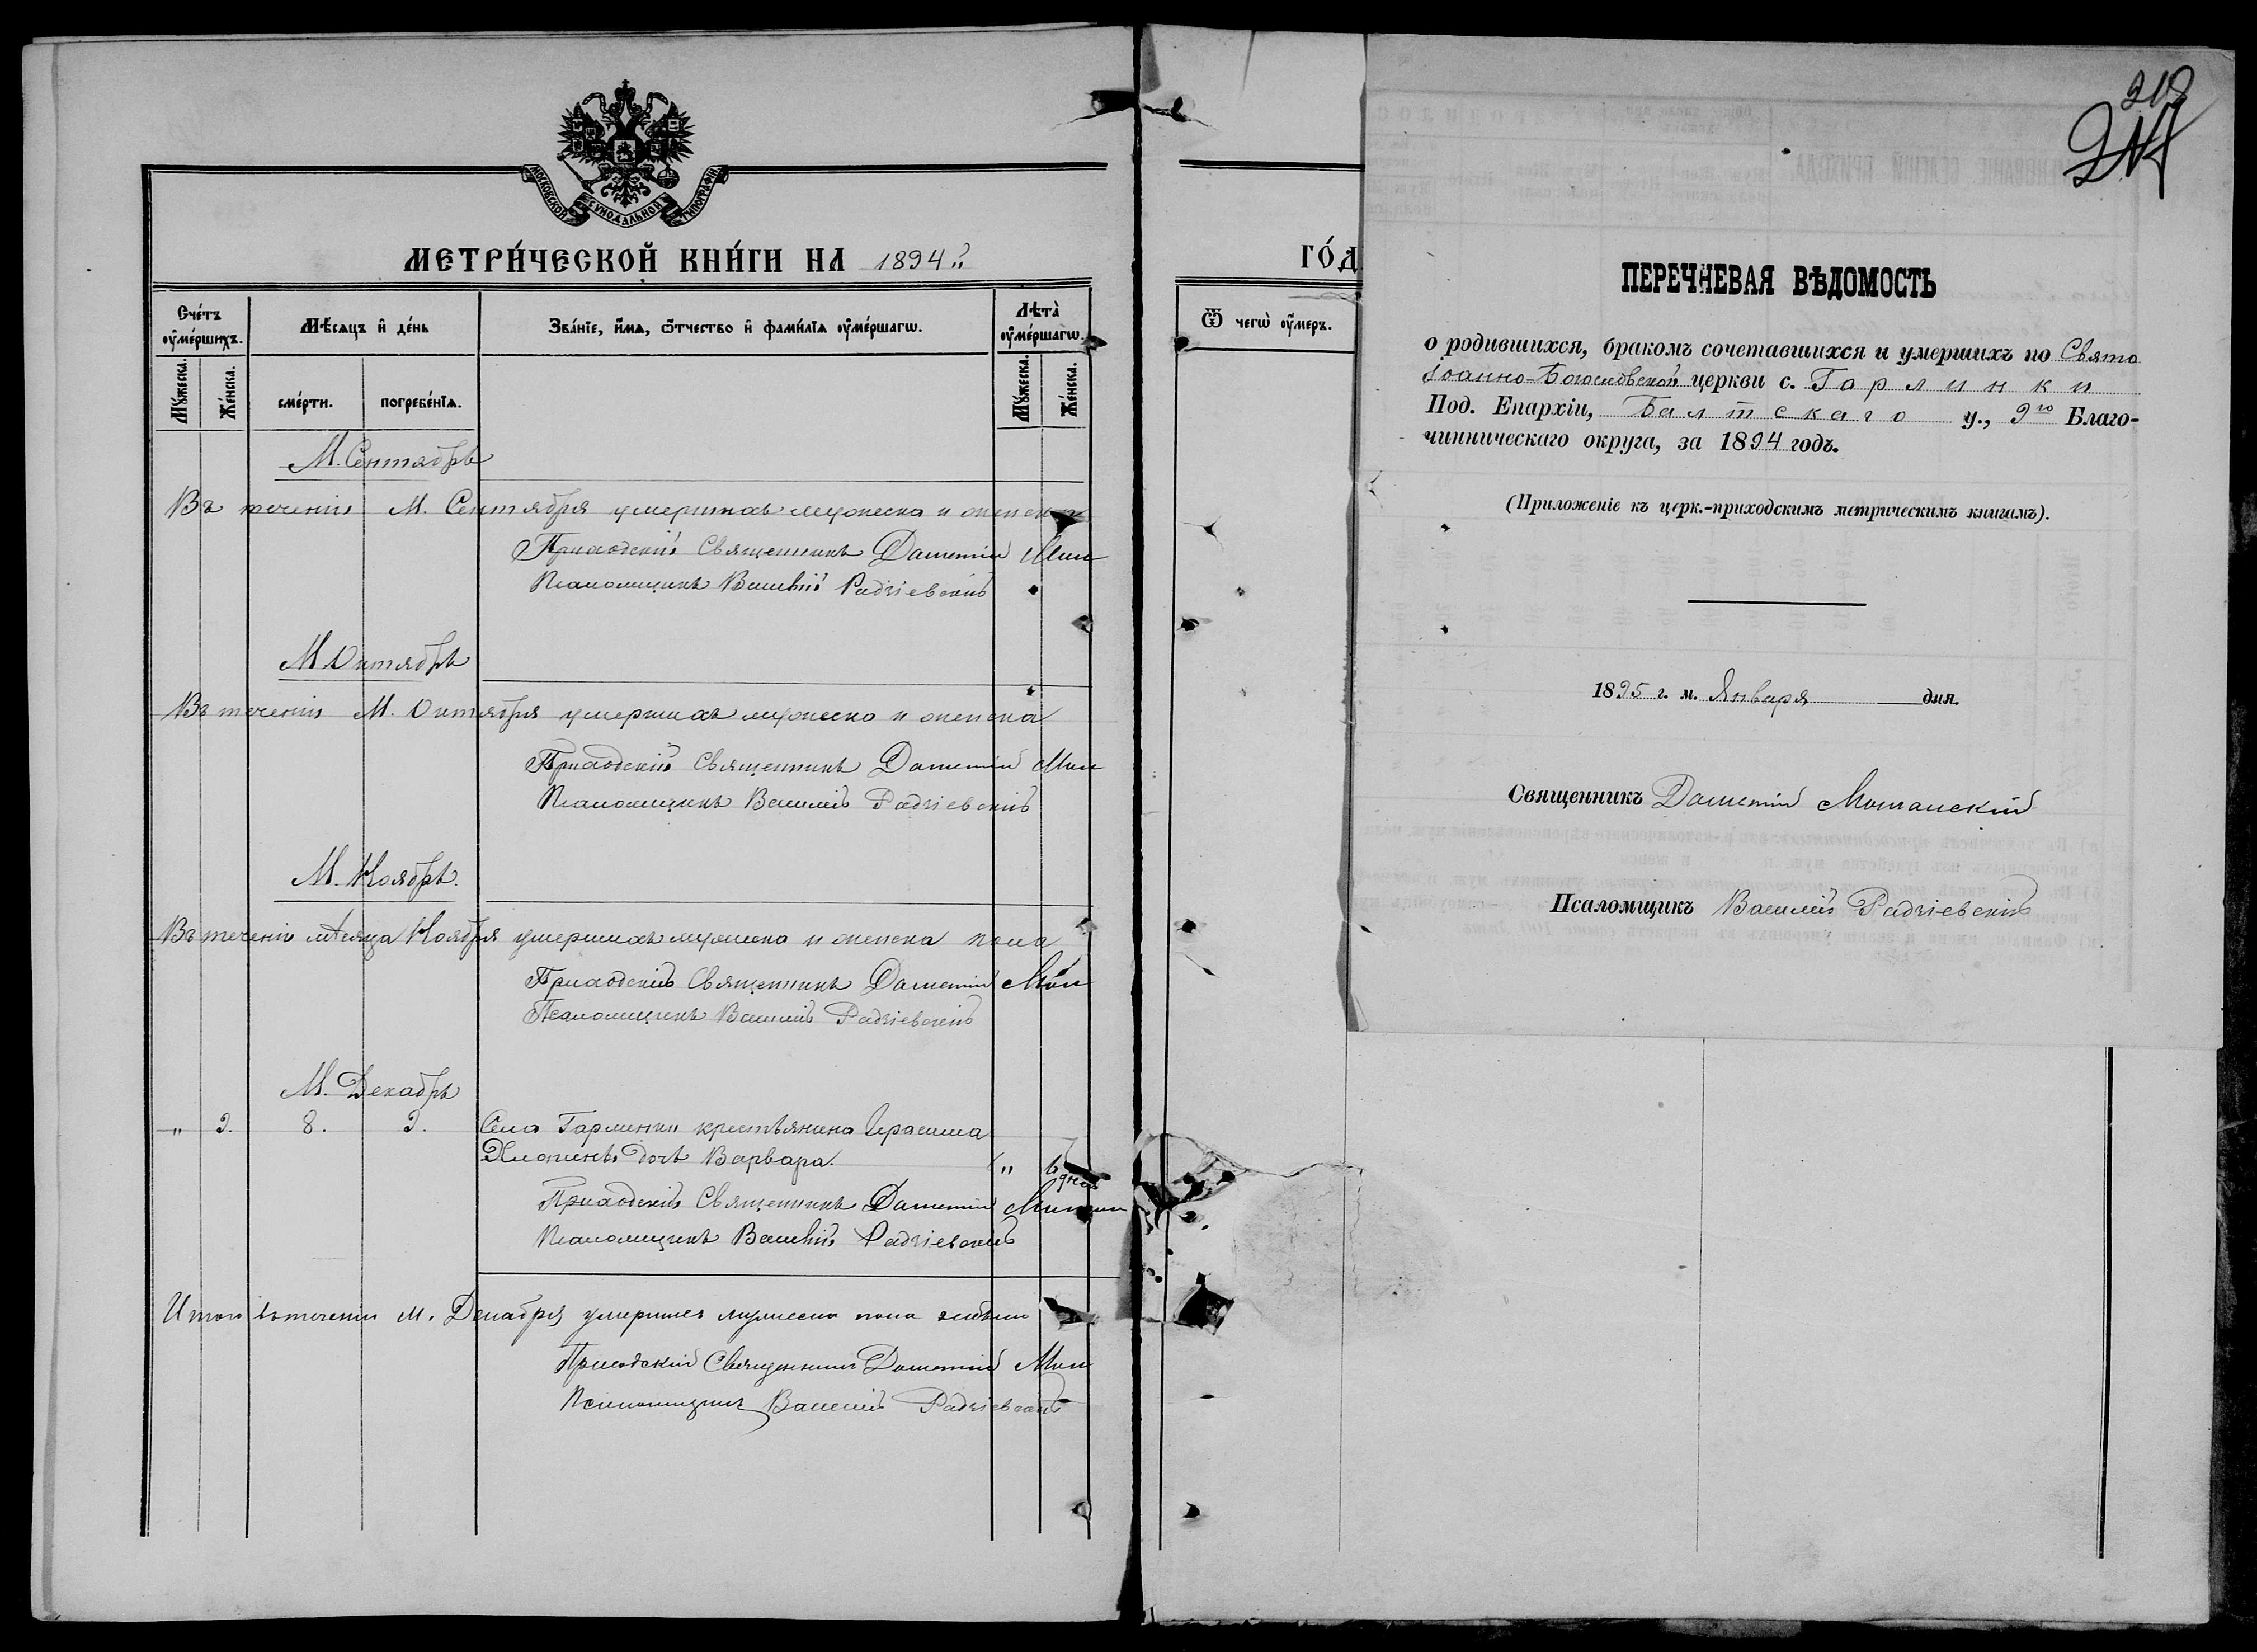 МОСКОВСКОЙ СѴНОДАЛЬНОЙ ТИПОГРАФІИ
МЕТРИ́ЧЕСКОЙ КНИ́ГИ НА 1894 г.
Сче́тъ ᲂу҆ме́ршихъ.
Мѣ́сяцъ и҆ де́нь
Зва́нїе, и҆́мѧ, ѻ҆́тчество и҆ фами́лїѧ ᲂу҆ме́ршагѡ.
Лѣта̀ ᲂу҆ме́ршагѡ.
Мꙋ́жеска.
Же́нска.
сме́рти.
погребе́нїѧ.
Мꙋ́жеска.
Же́нска.
М. Сентябрь
Въ теченіи М. Сентября умершихъ мужеска и женска
Приходскій Священникъ Дометій
Псаломщикъ Василій Радзіевскій
М. Октябрь
Въ теченіи М. Октября умершихъ мужеска и женска
Приходскій Священникъ Дометій
Псаломщикъ Василій Радзіевскій
М. Ноябрь.
Въ теченіи мѣсяца Ноября умершихъ мужеска и женска пола
Приходскій Священникъ Дометій
Псаломщикъ Василій Радзіевскій
М. Декабрь
" 9. 8. 9. Села Гарлинки крестьянина Герасима
дочь Варвара. "
Приходскій Священникъ Дометій
Псаломщикъ Василій Радзіевскій
Итого въ теченіи м. Декабря умершихъ мужеска пола
Приходскій Священникъ Дометій
Псаломщикъ Василій Радзіевскій
ГО́Д
Ѿ чегѡ̀ ᲂу҆́меръ.
218
ПЕРЕЧНЕВАЯ ВѢДОМОСТЬ
о родившихся, бракомъ сочетавшихся и умершихъ по Свято
Іоанно-Богословской церкви с. Гарлинки
Под. Епархіи, Балтскаго у., 9го Благо-
чинническаго округа, за 1894 годъ.
(Приложеніе къ церк.-приходскимъ метрическимъ книгамъ).
1895 г. м. Января дня
Священникъ Дометій
Псаломщикъ Василій Радзіевскій